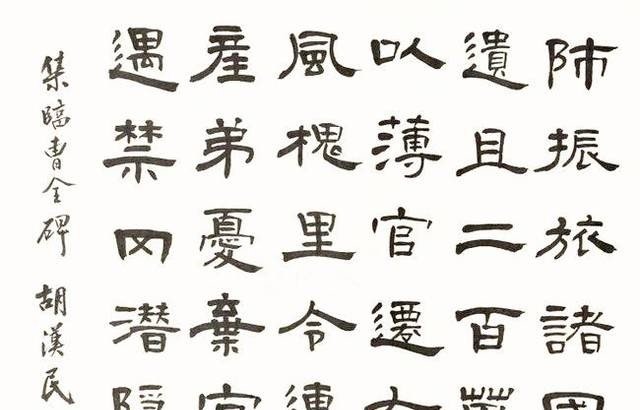 師振旅諸國
遺且二百萬
以薄官遷右
風槐里令遭
產弟憂棄官
遇禁冈潛隱
集臨曹全碑 胡漢民